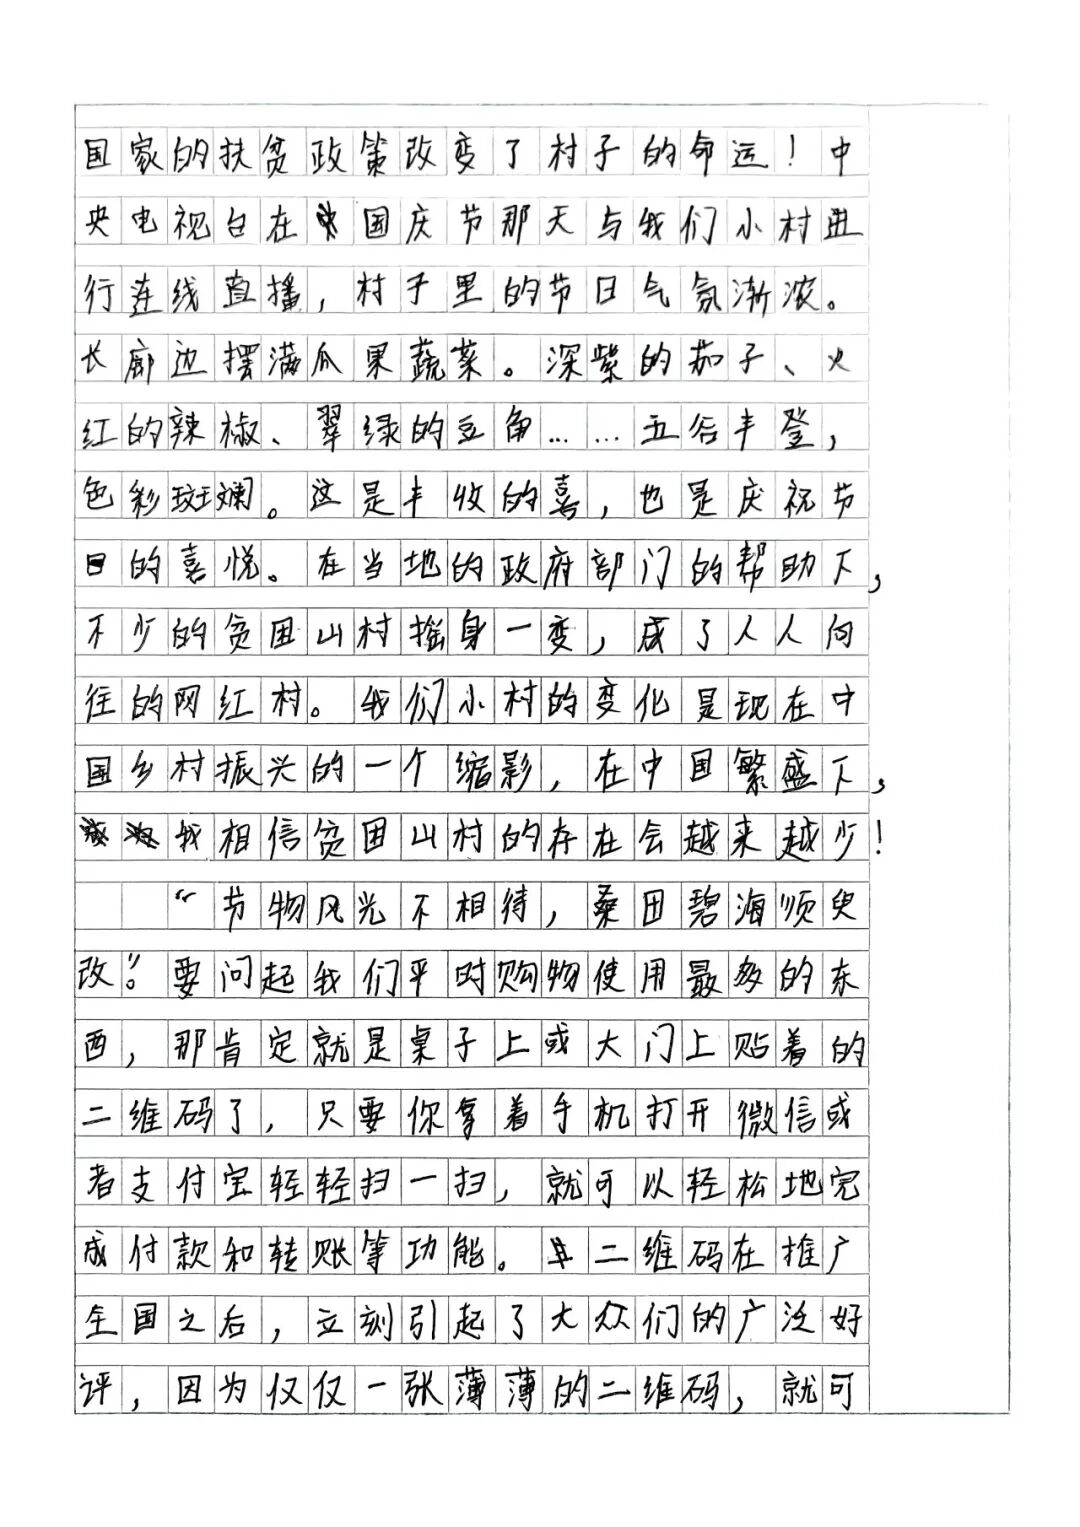 国家的扶贫政策改变了村子的命运！中
央电视台在国庆节那天与我们小村进
行连线直播，村子里的节日气氛渐浓。
长廊边摆满瓜果蔬菜。深紫的茄子、火
红的辣椒、翠绿的豆角……五谷丰登，
色彩斑斓。这是丰收的喜，也是庆祝节
日的喜悦。在当地的政府部门的帮助下，
不少的贫困山村摇身一变，成了人人向
往的网红村。我们小村的变化是现在中
国乡村振兴的一个缩影，在中国繁盛下，
我相信贫困山村的存在会越来越少！
“节物风光不相待，桑田碧海须臾
改”。要问起我们平时购物使用最多的东
西，那肯定就是桌子上或大门上贴着的
二维码了，只要你拿着手机打开微信或
者支付宝轻轻扫一扫，就可以轻松地完
成付款和转账等功能。二维码在推广
全国之后，立刻引起了大众们的广泛好
评，因为仅仅一张薄薄的二维码，就可